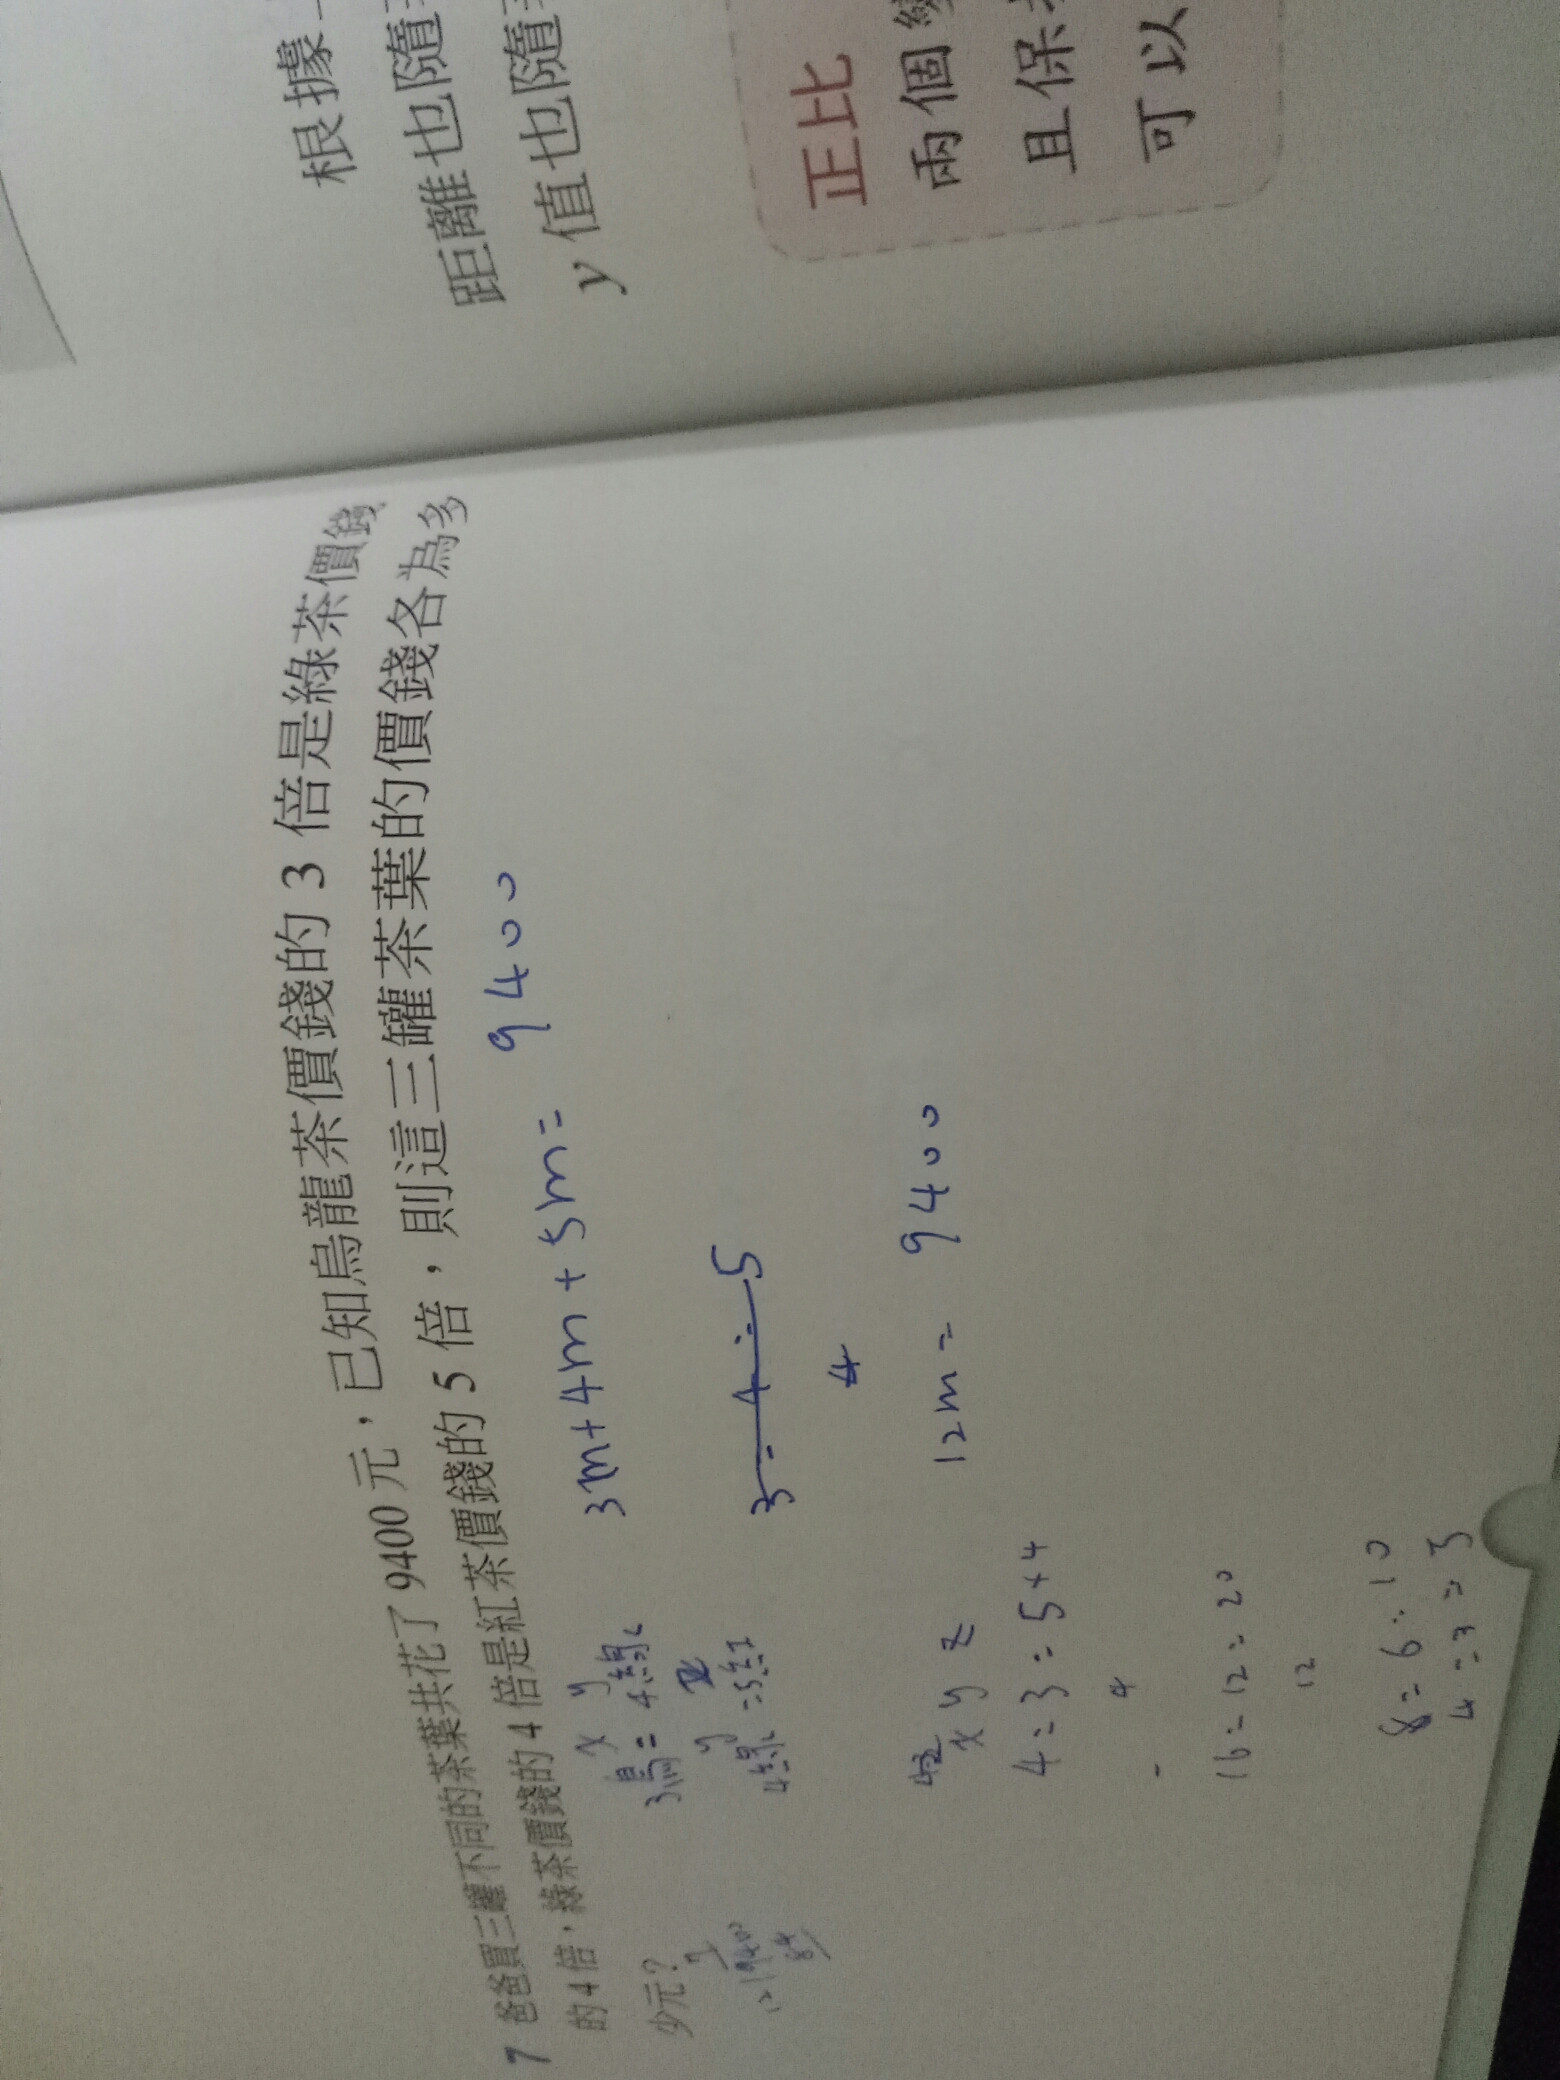 根據
距離也隨
y 值也隨
正比
兩個
且保
可以
7 爸爸買三罐不同的茶葉共花了 9400 元，已知烏龍茶價錢的 3 倍是綠茶價錢
的 4 倍，綠茶價錢的 4 倍是紅茶價錢的 5 倍，則這三罐茶葉的價錢各為多
少元？
x y
3烏=4綠
y z
4綠=5紅
3m+4m+5m= 9400
3:4:5
4
12m= 9400
12 9400
84
x y z
4:3:5+4
4
16:12:20
12
8:6:10
4:3:3